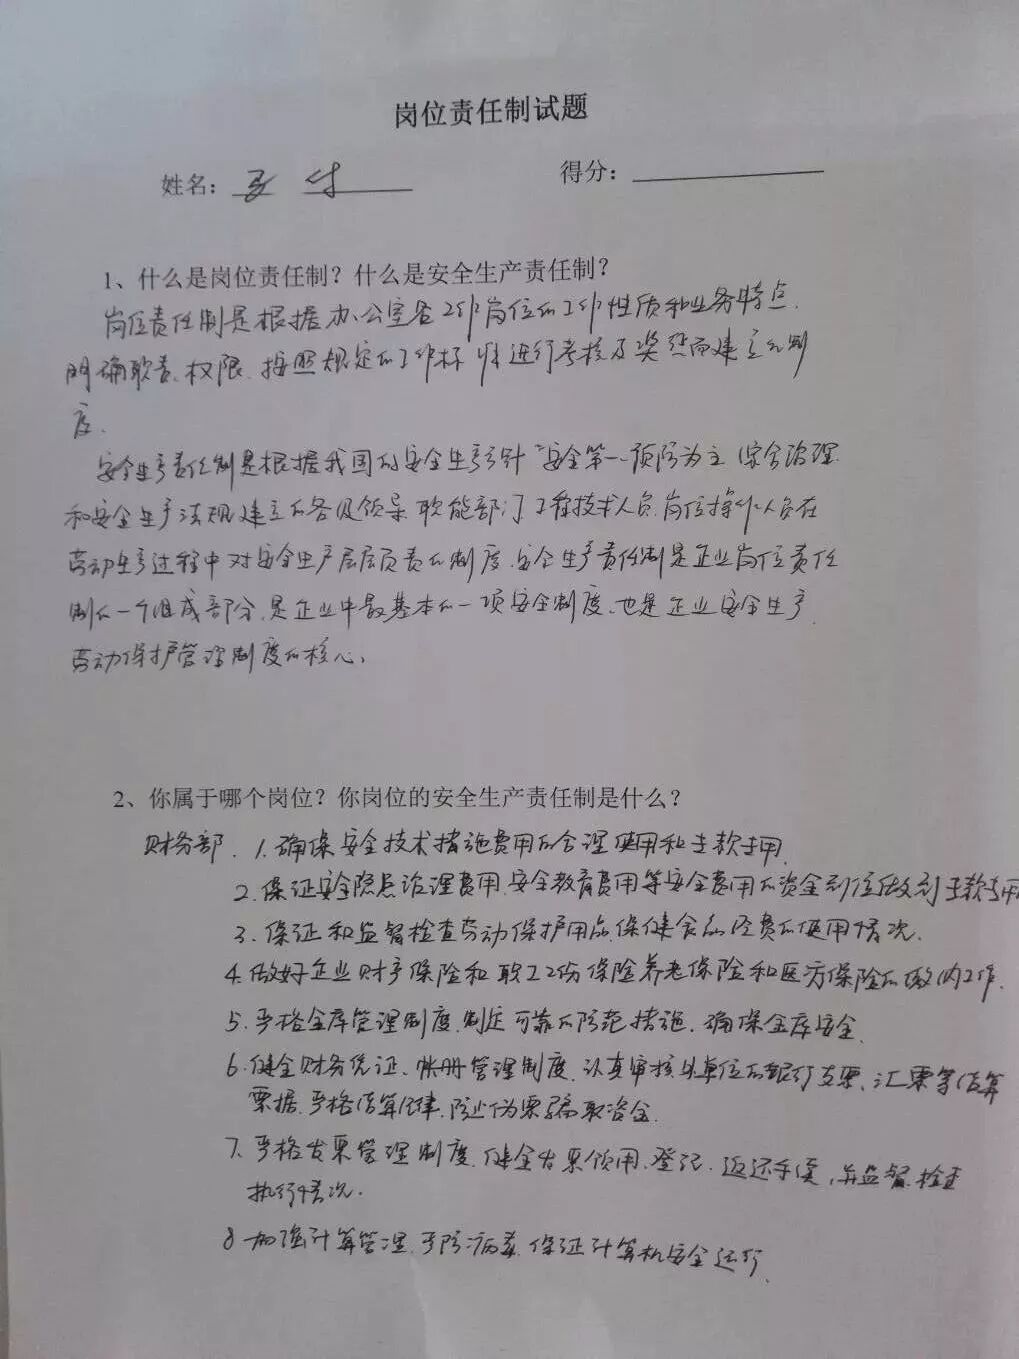 岗位责任制试题
姓名: 得分:
1、什么是岗位责任制?什么是安全生产责任制?
岗位责任制是根据办公室各工作岗位的工作性质和业务特点.
明确职责、权限、按照规定的工作标准进行考核及奖惩而建立的制
度.
安全生产责任制是根据我国的安全生产方针“安全第一、预防为主 综合治理
和安全生产法规建立的各级领导 职能部门 工程技术人员 岗位操作人员在
劳动生产过程中对安全生产层层负责的制度.安全生产责任制是企业岗位责任
制的一个组成部分,是企业中最基本的一项安全制度、也是企业安全生产
劳动保护管理制度的核心、
2、你属于哪个岗位?你岗位的安全生产责任制是什么?
财务部. 1.确保安全技术措施费用的合理使用和专款专用.
2.保证安全隐患治理费用.安全教育费用等安全费用的资金到位做到专款专用
3.保证和监督检查劳动保护用品.保健食品经费的使用情况.
4.做好企业财产保险和职工工伤保险养老保险和医疗保险的缴纳工作.
5.严格金库管理制度.制定可靠的防范措施.确保金库安全.
6.健全财务凭证、帐册管理制度.认真审核外单位的银行支票、汇票等结算
票据.严格结算纪律.防止伪票骗取资金.
7.严格发票管理制度.健全发票领用.登记.返还手续,并监督.检查
执行情况.
8.加强计算管理.予防病毒.保证计算机安全运行.